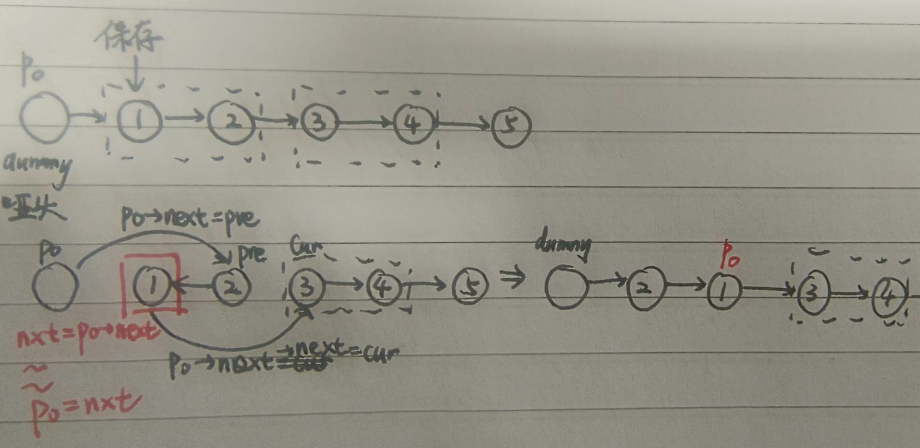 保存
p0
1 2 3 4 5
dummy
哑头
p0→next=pre
p0 1 2 pre cur 3 4 5 ⇒ dummy 2 p0 1 3 4
nxt=p0→next
p0→next→next=cur
p0=nxt